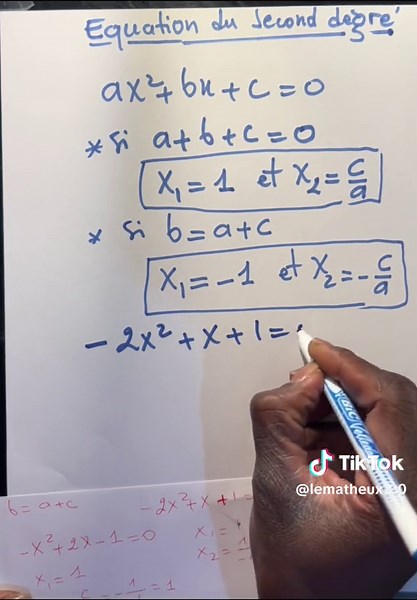 Equation du second degré
ax²+bx+c=0
* Si a+b+c=0
X₁=1 et X₂=c/a
* Si b=a+c
X₁=-1 et X₂=-c/a
-2x²+x+1=
TikTok
b=a+c
-2x²+x+1=
-x²+2x-1=0
x₁=
x₁=1